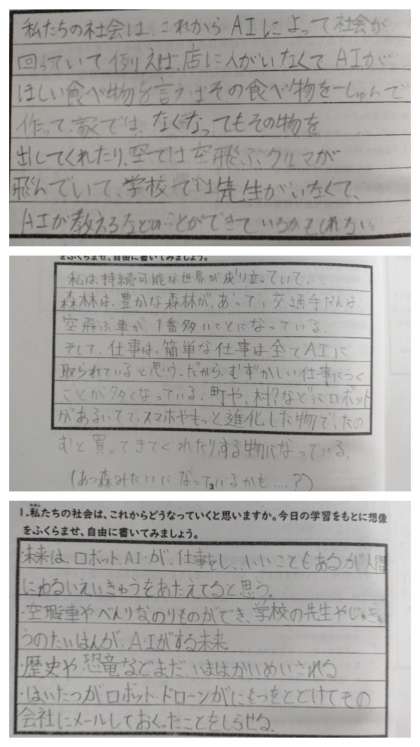 私たちの社会は、これからAIによって社会が
回っていて例えば、店に人がいなくてAIが
ほしい食べ物を言うばその食べ物を一しゅんで
作って、家では、なくなってもその物を
出してくれたり、空では空飛ぶクルマが
飛んでいて、学校では先生がいなくて、
AIが教えるなどのことができているかもしれない。
をふくらませ、自由に書いてみましょう。
私は、持続可能な世界が成り立っていて、
森林は、豊かな森林が、あって、交通手だんは、
空飛ぶ車が、1番多いことになっている。
そして、仕事は、簡単な仕事は全てAIに
取られていると思う。だから、むずかしい仕事につく
ことが多くなっている。町や、村?などにロボット
があるいてて、スマホやもっと進化した物で、たの
むと買ってきてくれたりする物になっている。
(あつ森みたいになっているかも…?)
1.私たちの社会は、これからどうなっていくと思いますか。今日の学習をもとに想像
をふくらませ、自由に書いてみましょう。
・未来は、ロボット、AIが、仕事をし、いいこともあるが人間
にわるいえいきょうをあたえてると思う。
・空飛車やべんりなのりものができ、学校の先生やじゅぎょ
うのたいはんが、AIがする未来
・歴史や恐竜などまだ、いまはかいめいされる
・はいたつがロボット、ドローンがにもつをとどけてもの
会社にメールしておくったことをしらせる。